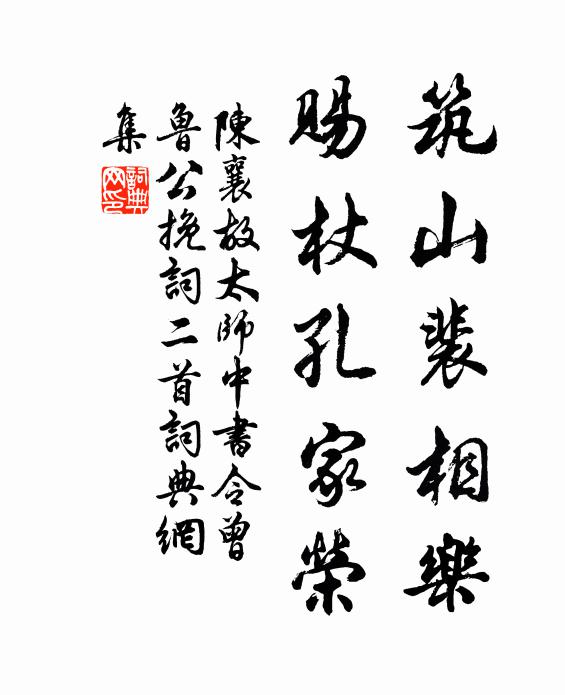 筑山裴相樂
賜杖孔家榮
陳襄故太師中書令曾
魯公挽詞二首詞典網
集
詞典
网印